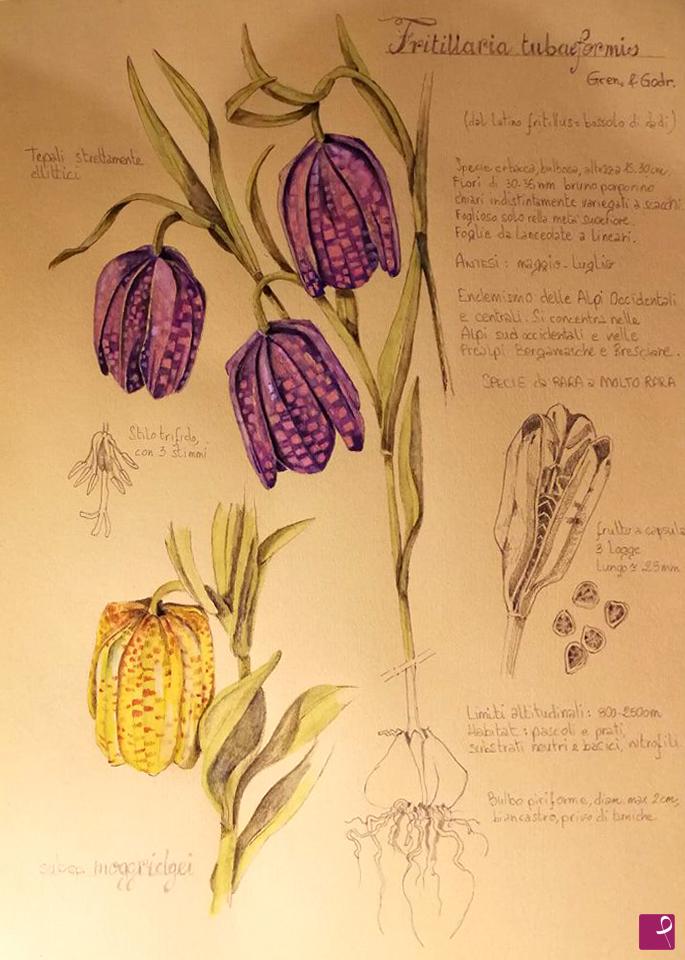 Fritillaria tubaeformis
Gren. & Godr.
(dal latino fritillus = bossolo di dadi)
Tepali strettamente
ellittici
Specie erbacea, bulbosa, altezza 15-30 cm.
Fiori di 30-35 mm bruno porporino
chiari indistintamente variegati a scacchi.
Foglioso solo nella metà superiore.
Foglie da lanceolate a lineari.
ANTESI: maggio-Luglio
Endemismo delle Alpi Occidentali
e centrali. Si concentra nelle
Alpi sud occidentali e nelle
Prealpi Bergamasche e Bresciane.
SPECIE da RARA a MOLTO RARA
Stilo trifido,
con 3 stimmi
frutto a capsula
3 Logge
Lungo ≈ 25mm
Limiti altitudinali: 800-2500m
Habitat: pascoli e prati,
substrati neutri e bacici, nitrofili
Bulbo piriforme, diam. max 2cm,
biancastro, privo di tuniche.
subsp. moggridgei